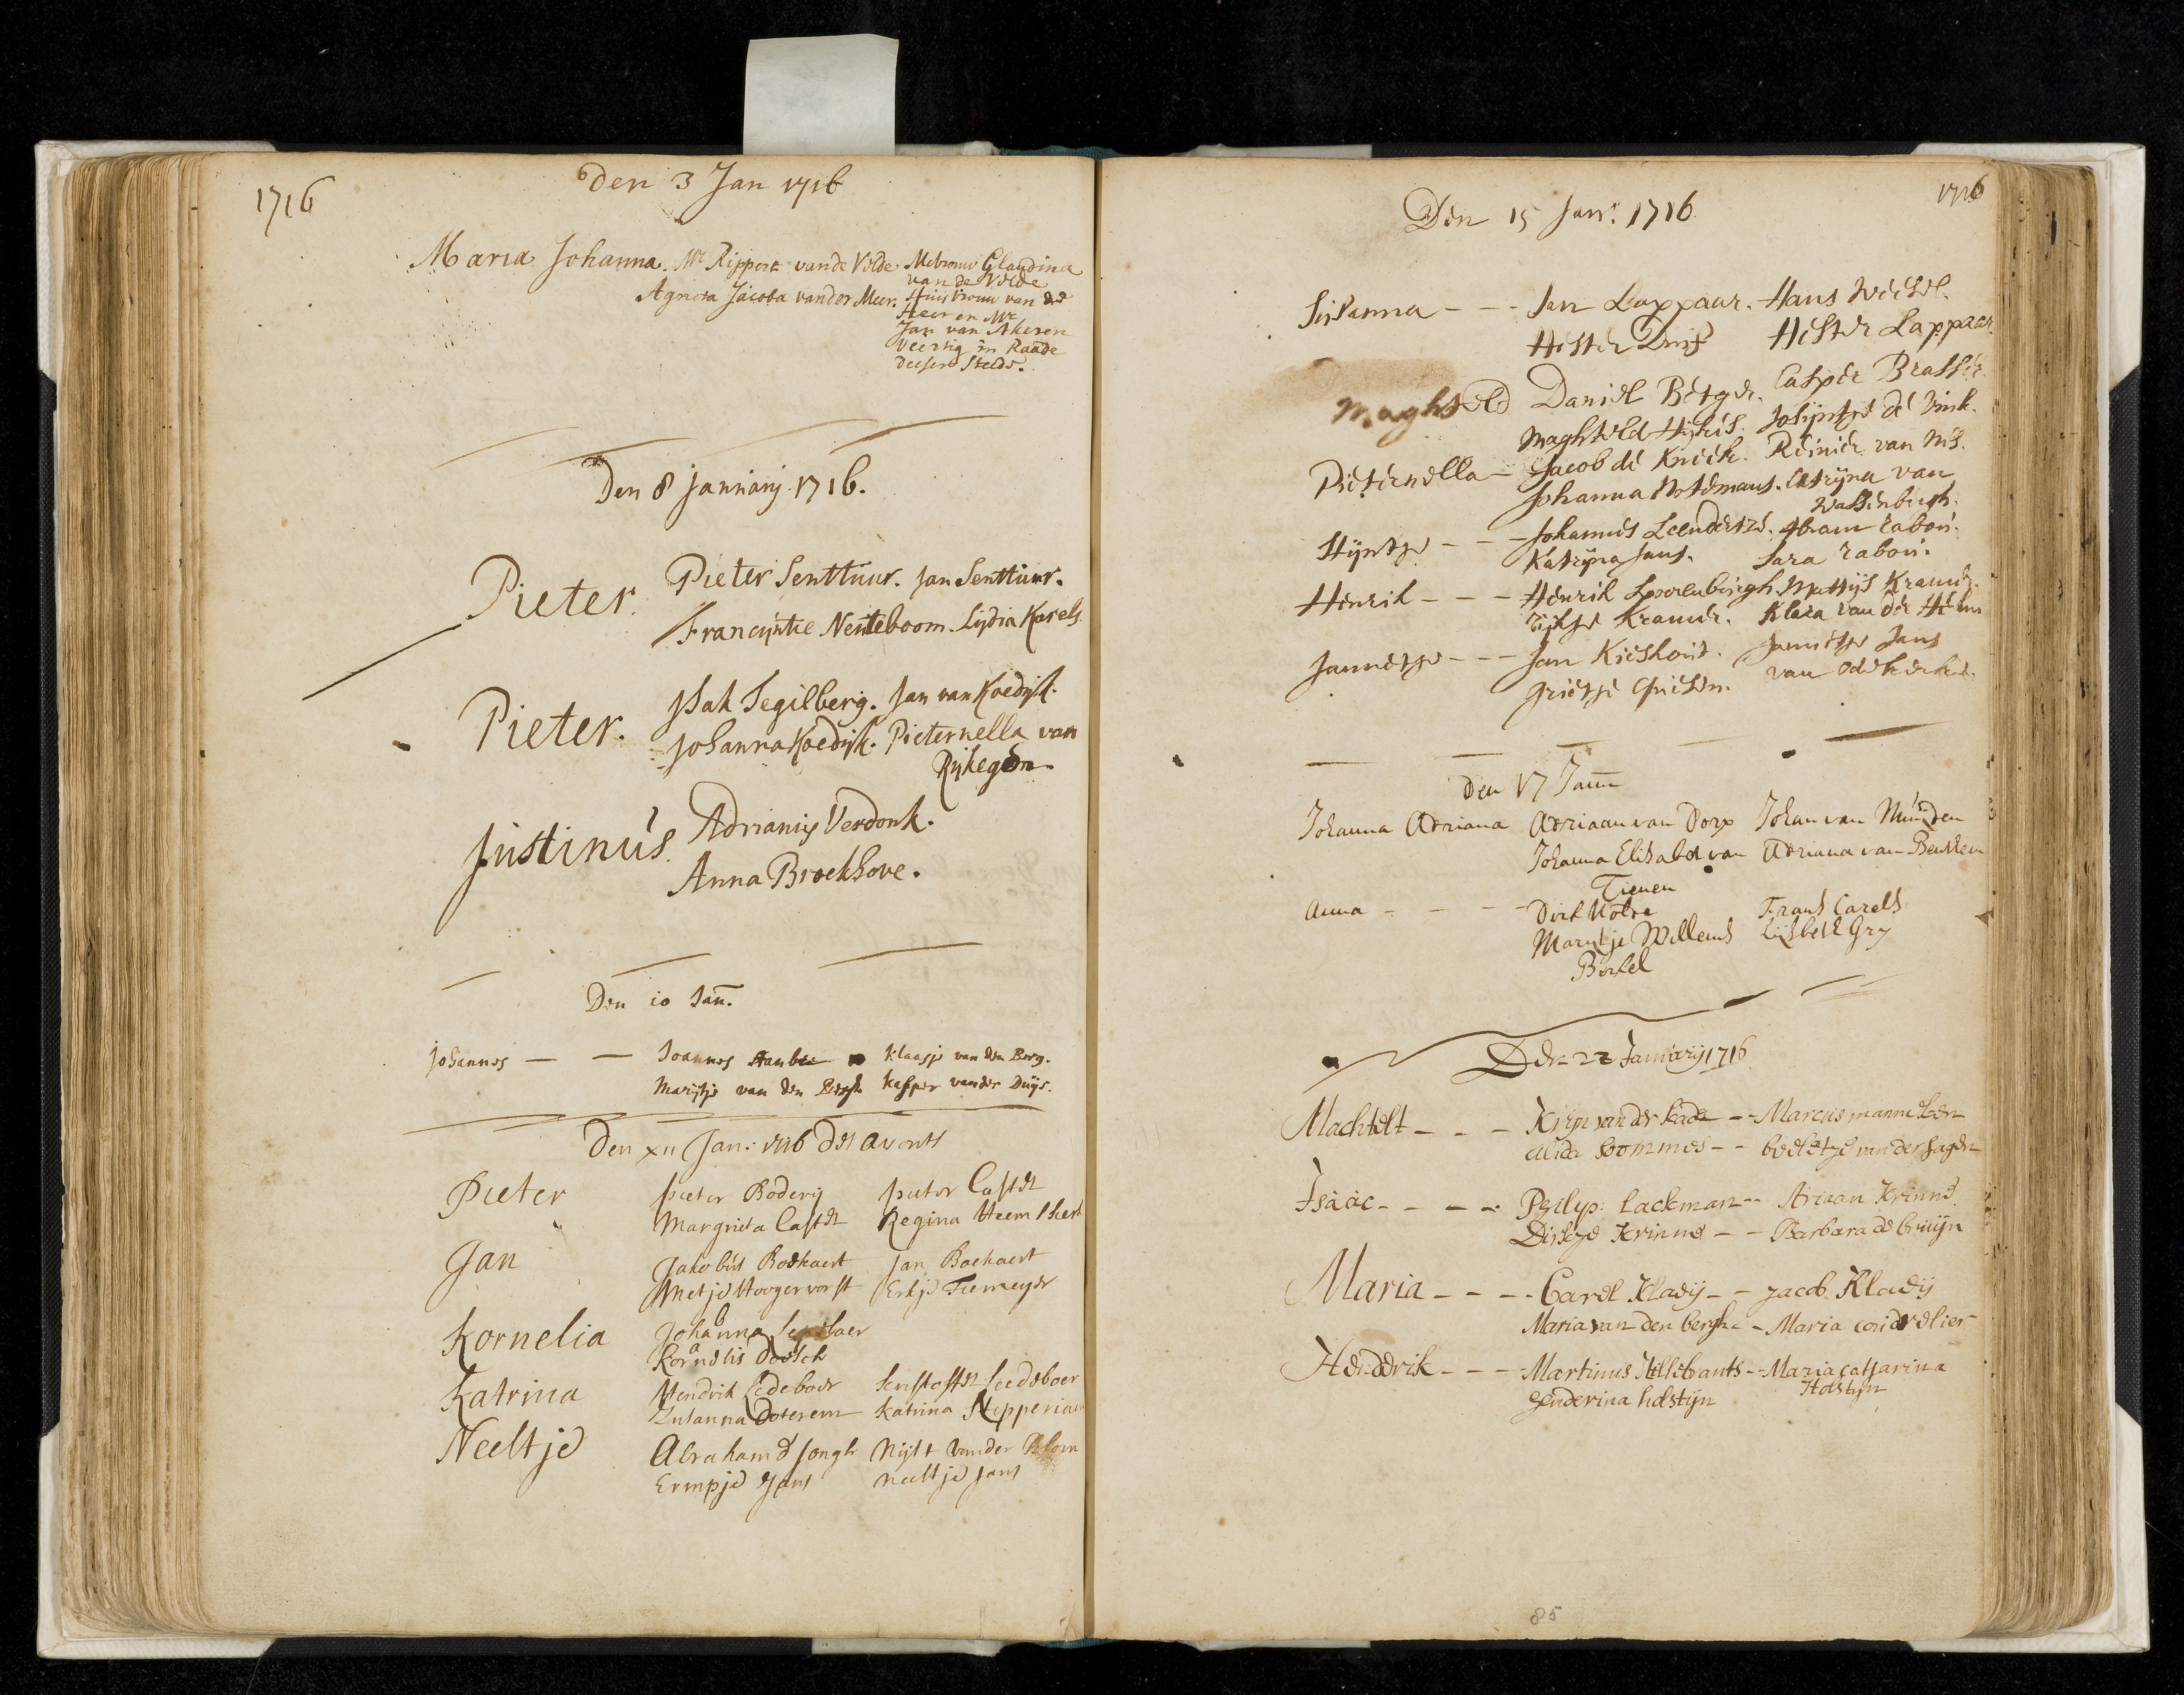 1716
den 3 Jan 1716
Maria Johanna. Mr Rippert vande Velde Mebrouw Glaudina
van de Velde
Agneta Jacoba vander Meer. Huisvrouw van de
Heer en Mr
Jan van Akeren
Veertig in Raade
deeser Stede.
Den 8 January 1716.
Pieter. Pieter Senttuur. Jan Senttuur.
Francyntie Nenteboom. Lydia Karels
Pieter. Isak Segilberg. Jan van Koedijk.
Johanna Koedijk. Pieternella van
Rijkegem
Justinus. Adrianus Verdonk.
Anna Broekhove.
Den 10 Jan.
Johannes — — Joannes klaasje van den Berg.
Marijtje van den Bergh kasper vander Duijs.
Den XII Jan: 1716 des avonts
Pieter pieter Boderij pieter Castel
Margrieta Castel Regina Heemskerk
Jan Jakobus Boekaert Jan Boekaert
Metje Hoogervorst Erkje Tiemeyer
Kornelia Johanna
Kornelis Boesch
Katrina Hendrik Ledeboer Leedeboer
Zusanna Doterem Katrina
Neeltje Abraham d Jongh Nijst vander Blom
Ermpje Jans Neeltje Jans
1716
Den 15 Jan. 1716
Susanna - - - Jan Lappaar. Hans Weesel.
Hester Duijf Hester Lappaar.
Maghteld Daniel Betger. Casper Brasser.
Maghteld Hijkes. Josijntje de Vink.
Pieternella - Jacob de Knecht. Reinier van Nes.
Johanna Notemans. Catrijna van
Wassenbergh.
Stijntje - - - Johannes Leendertze. Abram Rabou.
Katrijna Jans. Sara Rabou.
Henrik - - - Henrik Loorenbergh. Mattijs Kramer.
Eijkje Kramer. Klara van der Helm
Jannetje - - - Jan Kieshout. Jannetje Jans
Grietje van Odekerke.
Den 17 Jann
Johanna Adriana Adriaan van Dorp Johan van Munden
Johanna Elisabet van Adriana van
Tienen
Anna - - - Dirk Frans Carels
Maritje Willems Lijsbeth Gry
Borkel
Den 22 January 1716
Machtelt - - - Krijn van der kade - - Marcus manneken
Alida bommes - - beeletje van der hagen
Isaac - - - - Philyp: Lackman - - Ariaan Krinne
Dirkje Krinne - - Barbara de bruijn
Maria - - - - Carel Kladij - - jacob Kladij
Maria van den bergh - - Maria
Henderik - - - Martinus Hillebrants - - Maria catharina
Holstijn
henderina holstijn
85